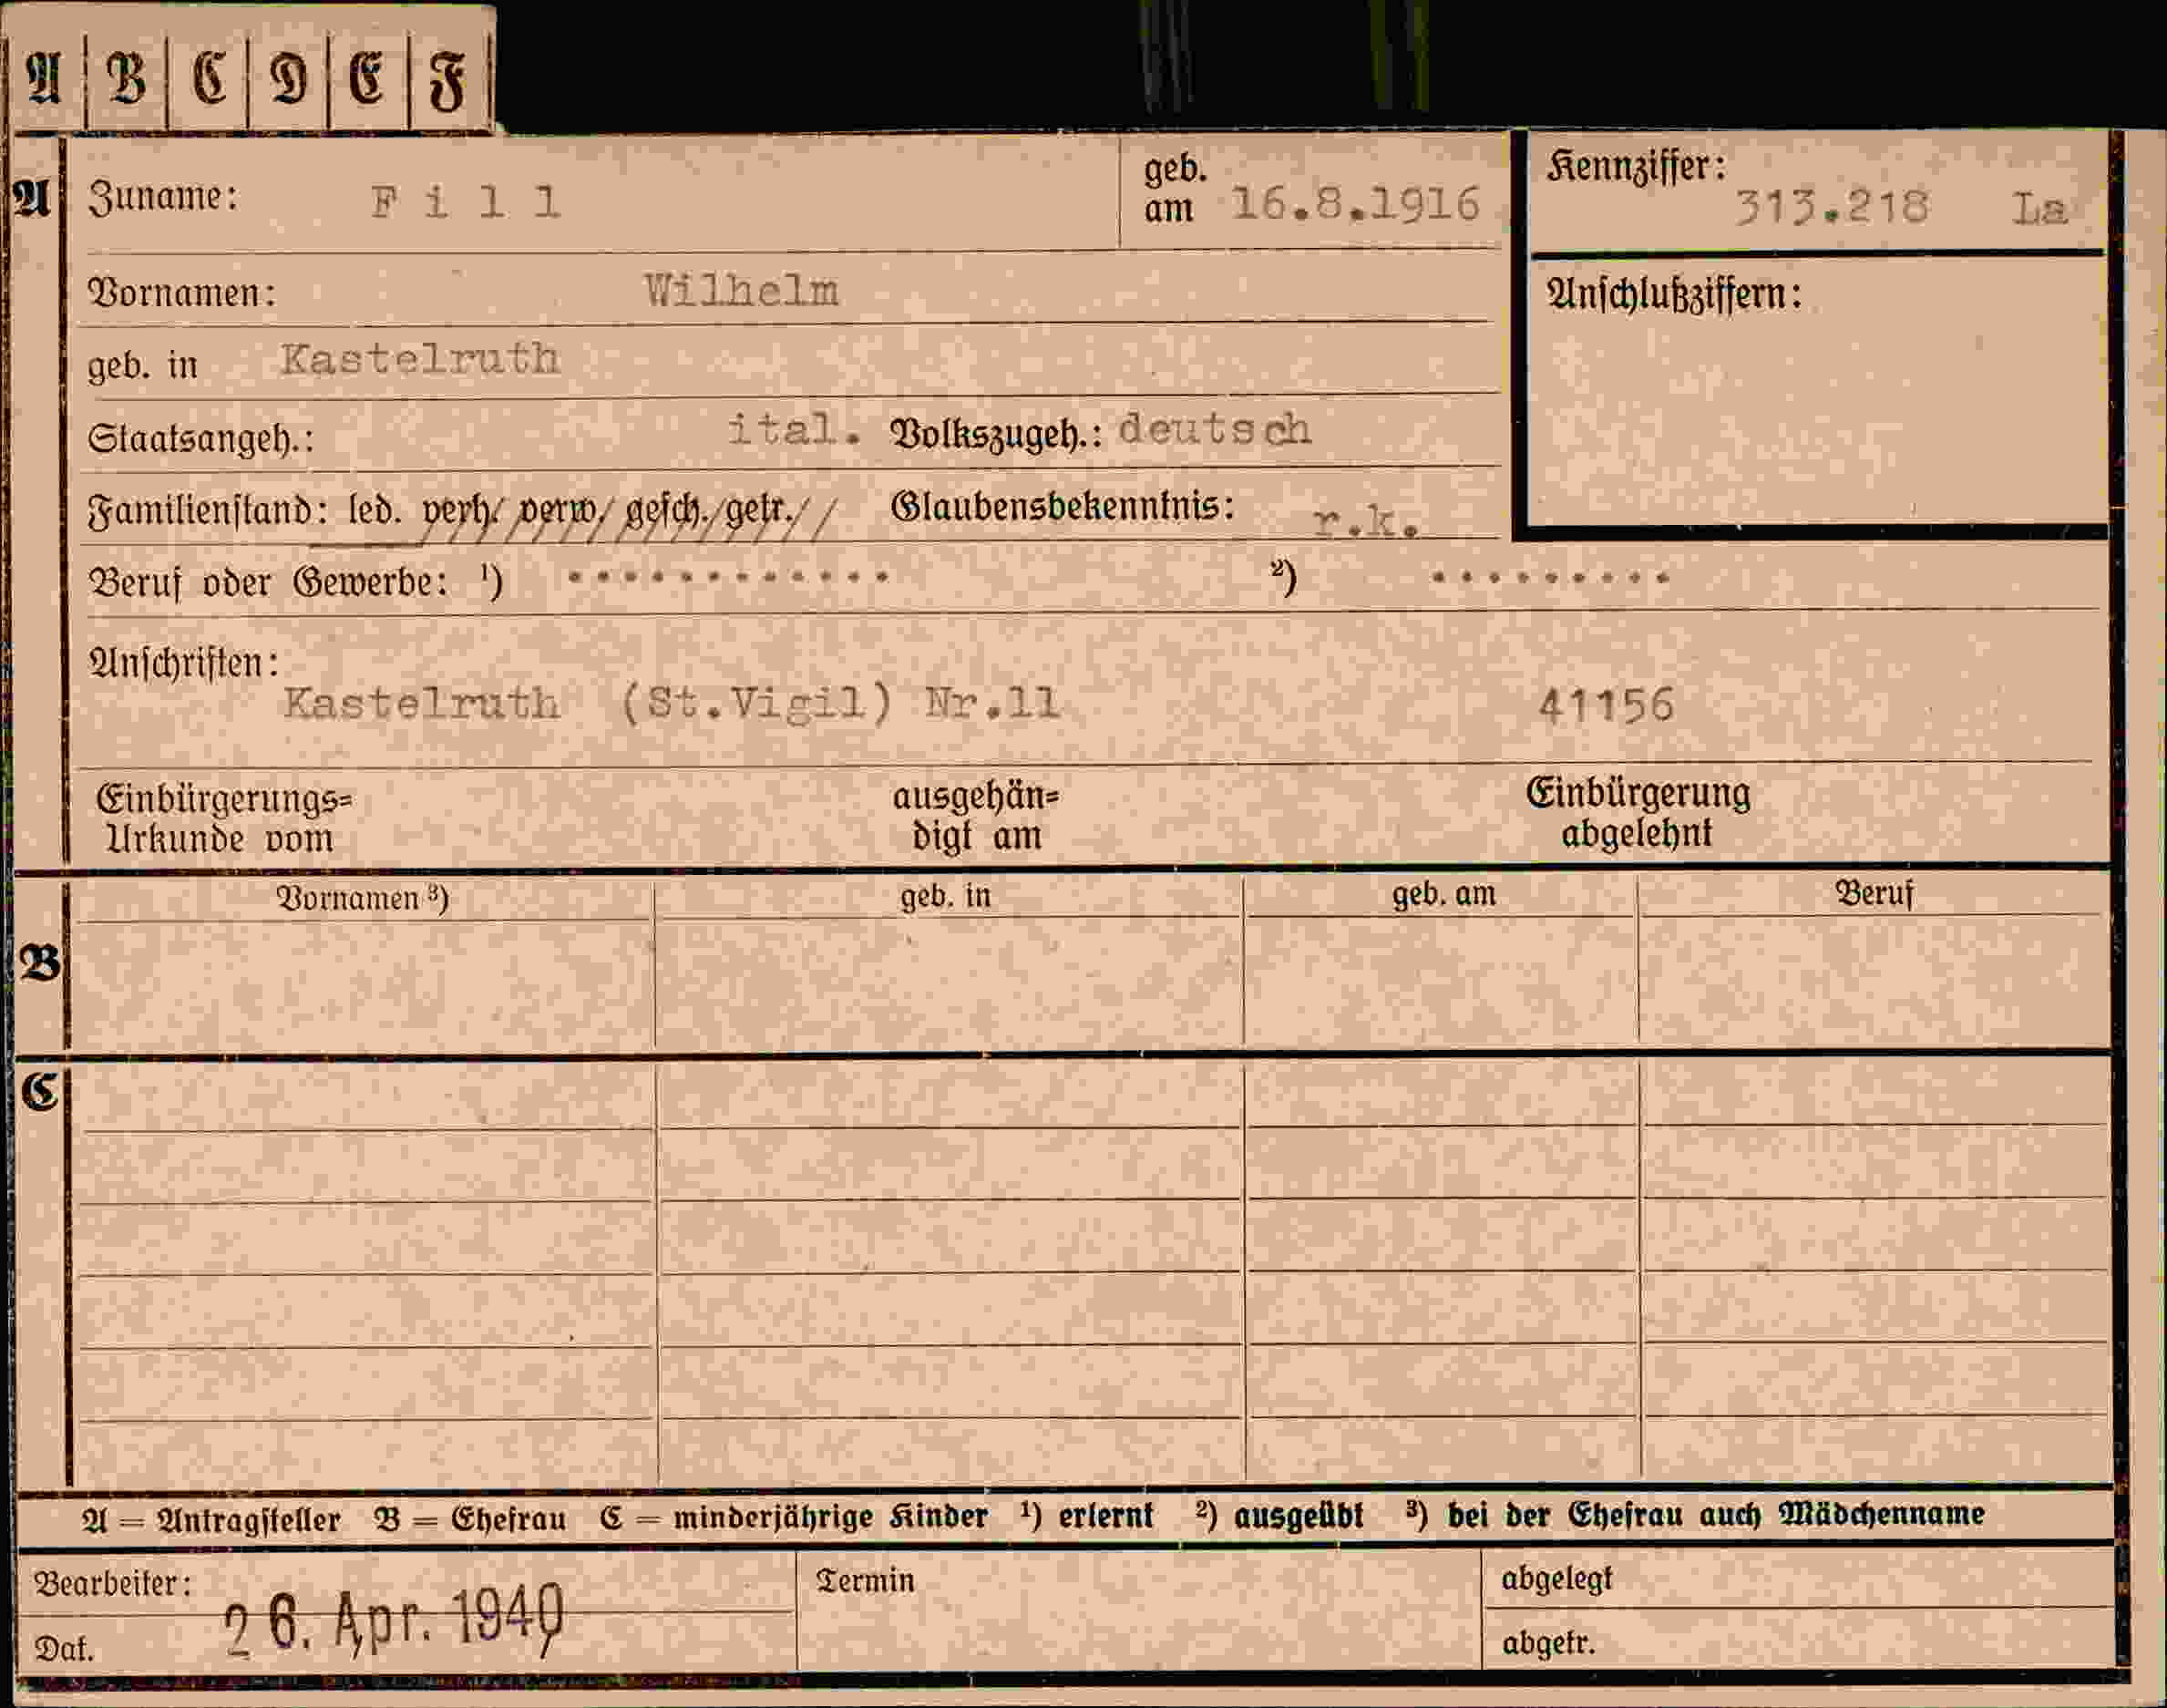 A | B | C | D | E | F
A Zuname: Fill geb. am 16.8.1916 Kennziffer: 313.218 La
Vornamen: Wilhelm Anschlußziffern:
geb. in Kastelruth
Staatsangeh.: ital. Volkszugeh.: deutsch
Familienstand: led. verh. verw. gesch. getr. Glaubensbekenntnis: r.k.
Beruf oder Gewerbe: ¹) ............ ²) .........
Anschriften:
Kastelruth (St.Vigil) Nr.11 41156
Einbürgerungs= ausgehän= Einbürgerung
Urkunde vom digt am abgelehnt
Vornamen ³) geb. in geb. am Beruf
B
C
A = Antragsteller B = Ehefrau C = minderjährige Kinder ¹) erlernt ²) ausgeübt ³) bei der Ehefrau auch Mädchenname
Bearbeiter: Termin abgelegt
26. Apr. 1940
Dat. abgetr.